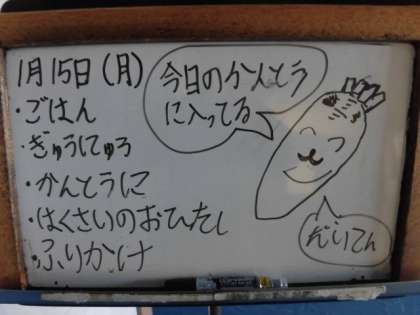 1月15日(月)
・ごはん
・ぎゅうにゅう
・かんとうに
・はくさいのおひたし
・ふりかけ
今日のかんとう
に入ってる
だいこん